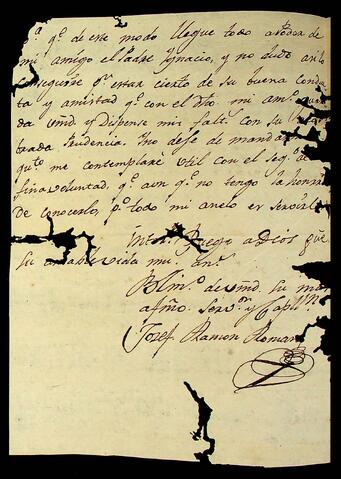 qe. de este modo llegue todo a poder de
mi amigo el Padre Ignacio, y no dudo
conseguirse qe. estar cierto de su buena
y amistad qe. con el Dho mi amo.
da vmd. y Dispense mis falt. con su
Prudencia. Ino deje de mandar
qto. me contemplare vtil con el seg.
fina voluntad, qe. aun qe. no tengo la honrra
De conocerlo, po. todo mi anelo es servirle
Ruego a Dios gue.
su amable vida ms. as.
Blmo. de vmd. su mas
afmo. Servor. y Capln.
Josef Ramon Roman